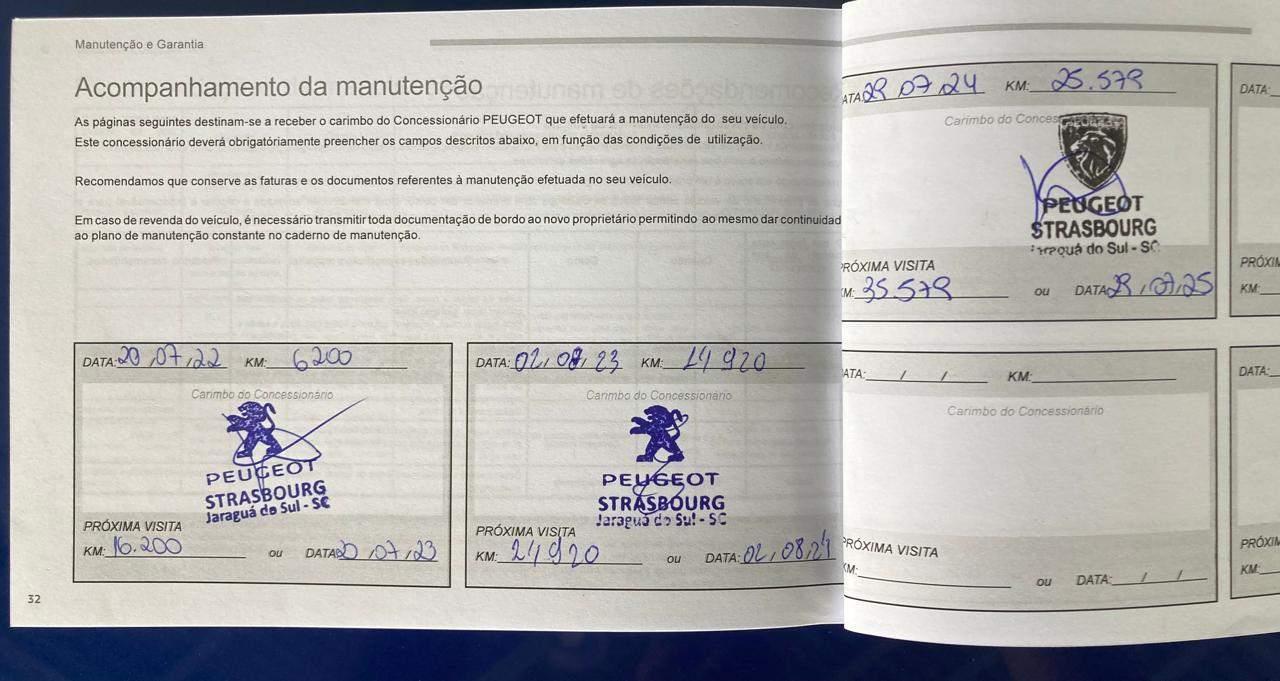 Manutenção e Garantia
Acompanhamento da manutenção
As páginas seguintes destinam-se a receber o carimbo do Concessionário PEUGEOT que efetuará a manutenção do seu veículo.
Este concessionário deverá obrigatóriamente preencher os campos descritos abaixo, em função das condições de utilização.
Recomendamos que conserve as faturas e os documentos referentes à manutenção efetuada no seu veículo.
Em caso de revenda do veículo, é necessário transmitir toda documentação de bordo ao novo proprietário permitindo ao mesmo dar continuidad
ao plano de manutenção constante no caderno de manutenção.
DATA: 20/07/22 KM: 6200
Carimbo do Concessionário
PEUGEOT
STRASBOURG
Jaraguá do Sul - SC
PRÓXIMA VISITA
KM: 16.200 ou DATA: 20/07/23
DATA: 02/08/23 KM: 14920
Carimbo do Concessionário
PEUGEOT
STRASBOURG
Jaraguá do Sul - SC
PRÓXIMA VISITA
KM: 24920 ou DATA: 02/08/24
32
ATA: 29/07/24 KM: 25.579
Carimbo do Conces
PEUGEOT
STRASBOURG
Jaraguá do Sul - SC
PRÓXIMA VISITA
KM: 35.579 ou DATA: 29/07/25
ATA: / / KM:
Carimbo do Concessionário
PRÓXIMA VISITA
KM: ou DATA: / /
DATA:
PRÓXIM
KM:
DATA:
PRÓXI
KM: